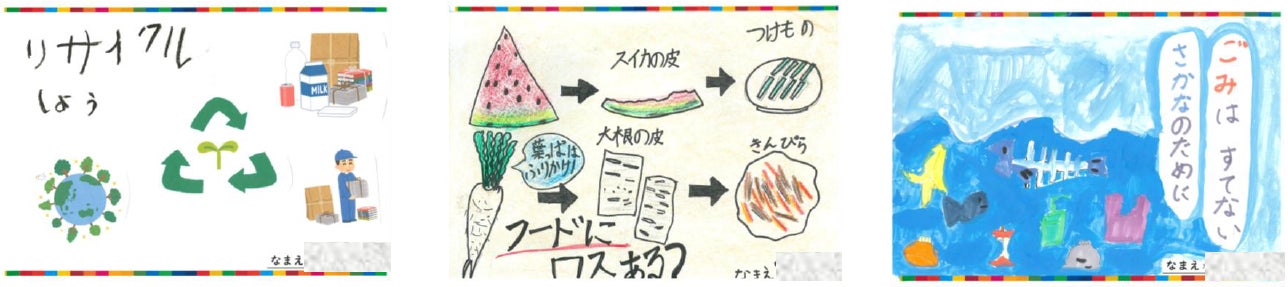 リサイクル
しよう
MILK
なまえ
つけもの
スイカの皮
大根の皮
きんぴら
葉っぱは
ふりかけ!
フードに
ロスある?
なまえ
ごみは すてない
さかなのために
なまえ